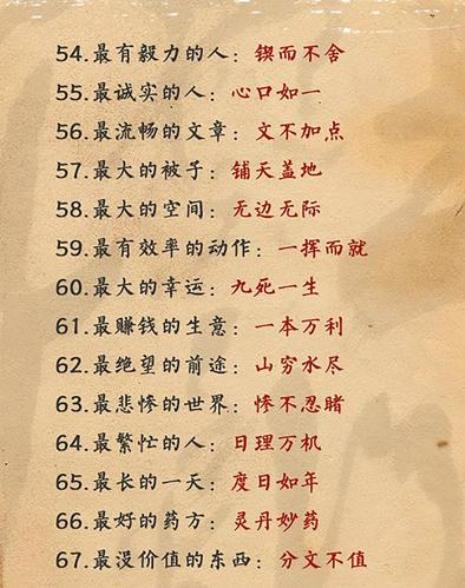 54.最有毅力的人：锲而不舍
55.最诚实的人：心口如一
56.最流畅的文章：文不加点
57.最大的被子：铺天盖地
58.最大的空间：无边无际
59.最有效率的动作：一挥而就
60.最大的幸运：九死一生
61.最赚钱的生意：一本万利
62.最绝望的前途：山穷水尽
63.最悲惨的世界：惨不忍睹
64.最繁忙的人：日理万机
65.最长的一天：度日如年
66.最好的药方：灵丹妙药
67.最没价值的东西：分文不值